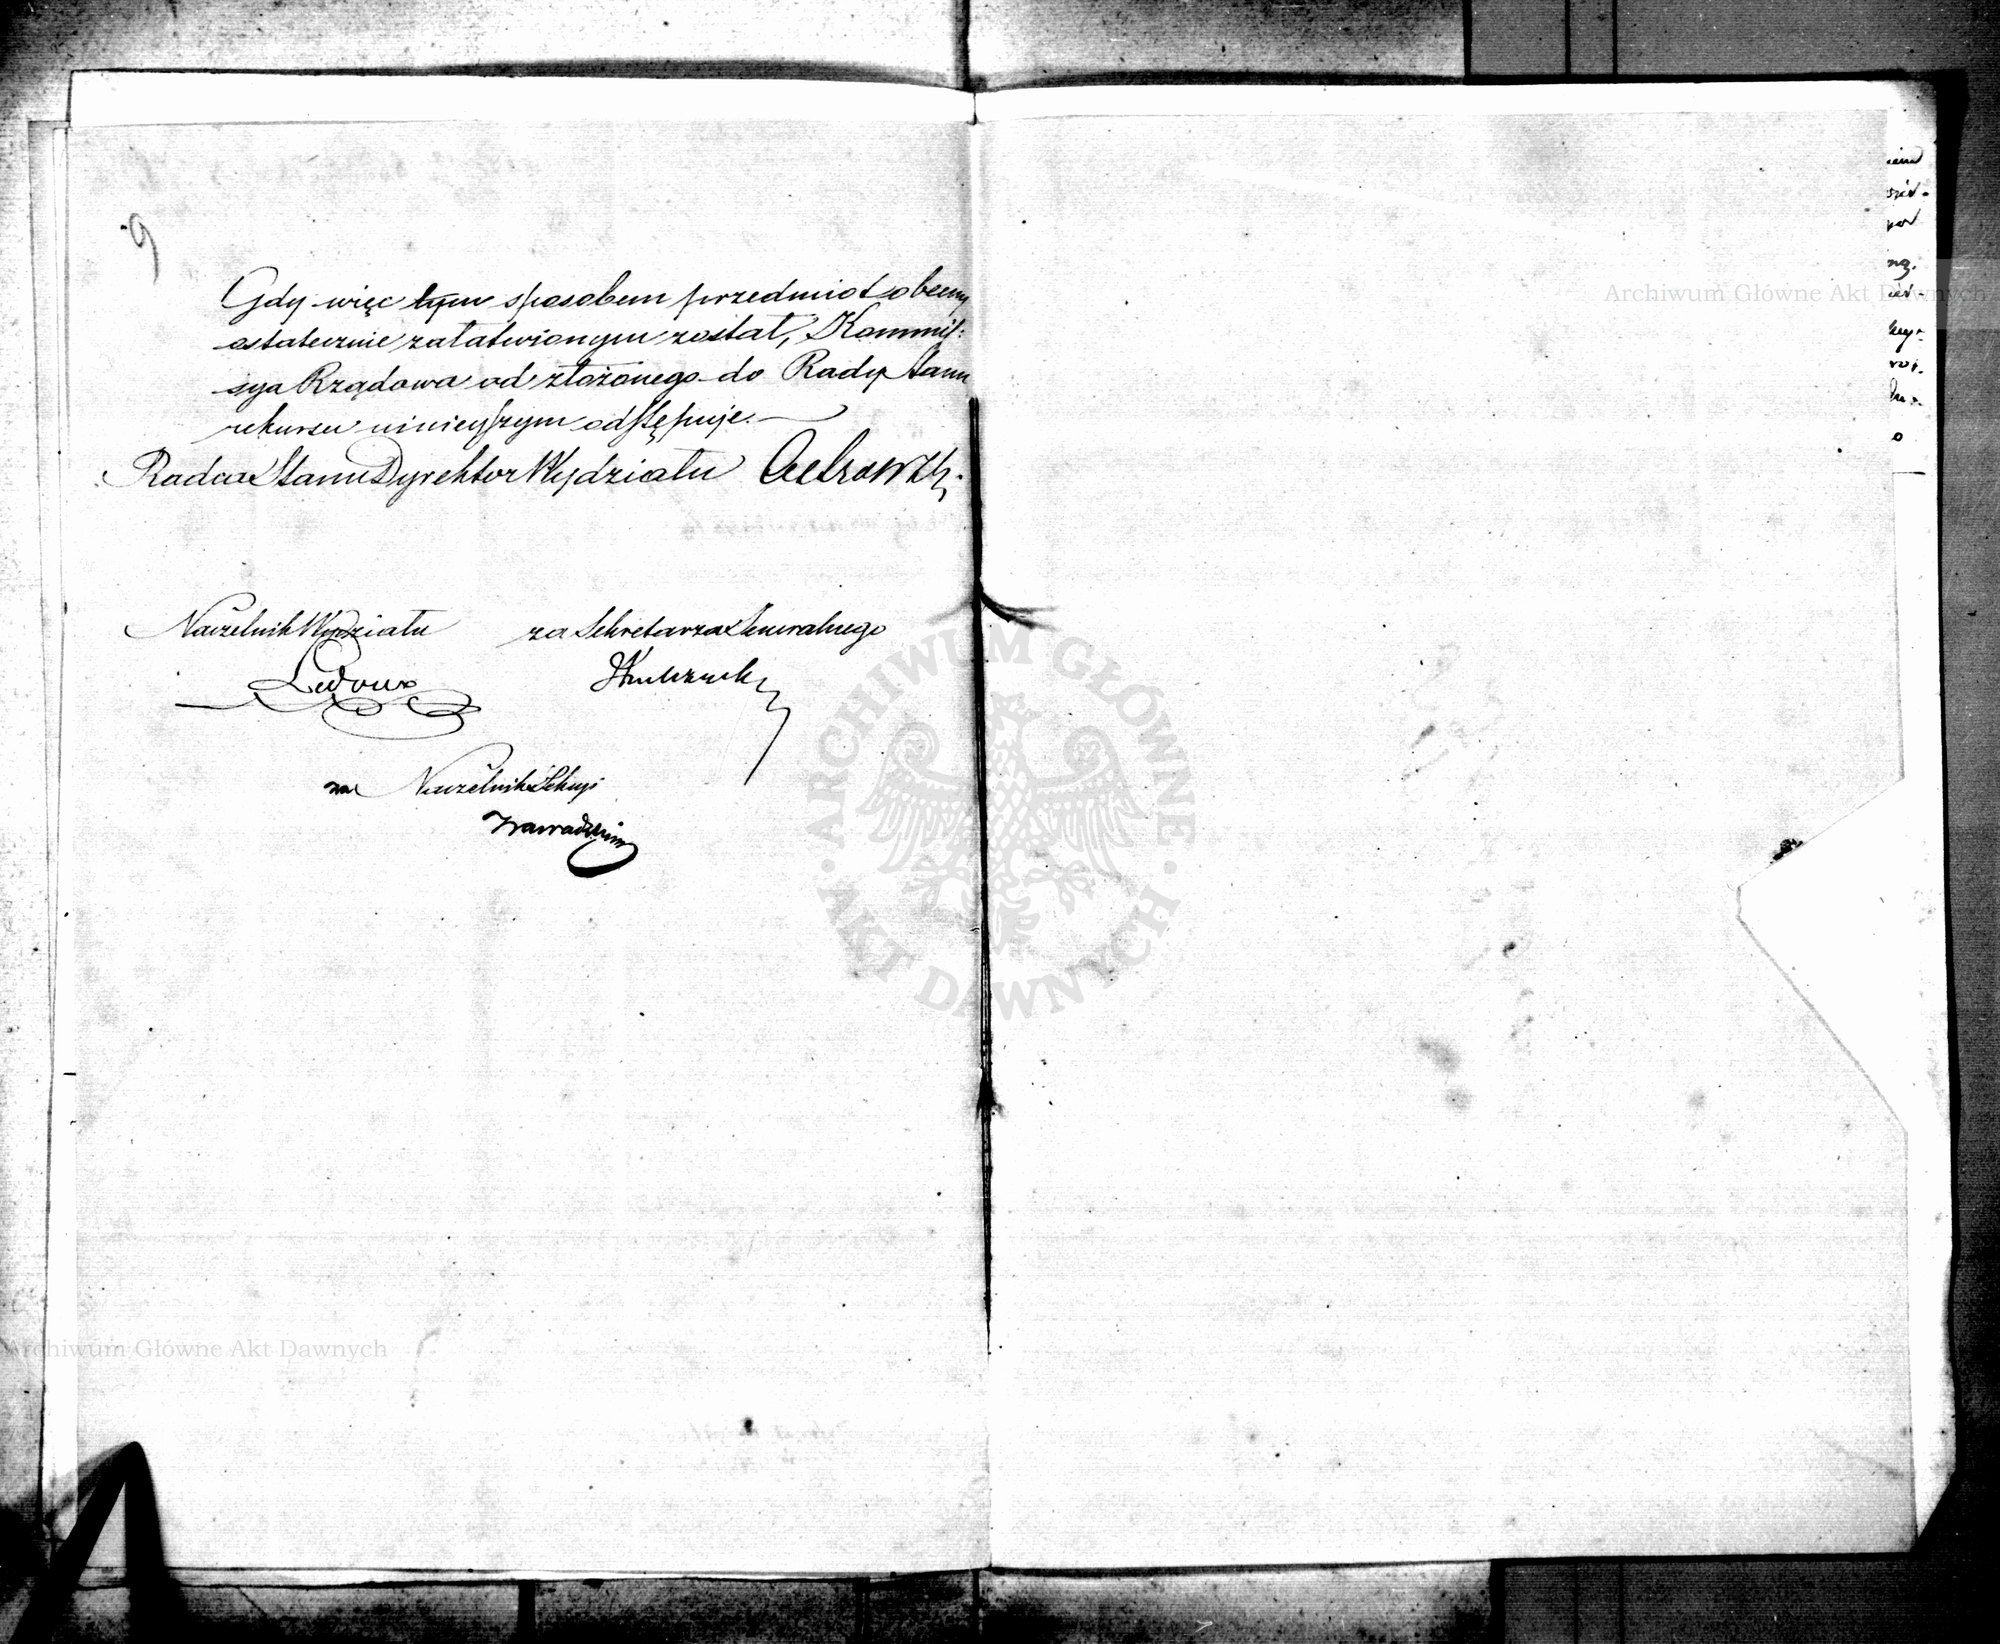 9
Gdy więc tym sposobem przedmiot obecny
ostatecznie załatwionym został, Kommis:
sya Rządowa od złożonego do Rady Stanu
rekursu ninieyszym odstępuje.
Radca Stanu Dyrektor Wydziału
Naczelnik Wydziału za Sekretarza Jeneralnego
Ledoux
za Naczelnika Sekcyi
Archiwum Główne Akt Dawnych
ARCHIWUM GŁÓWNE AKT DAWNYCH
Archiwum Główne Akt Dawnych